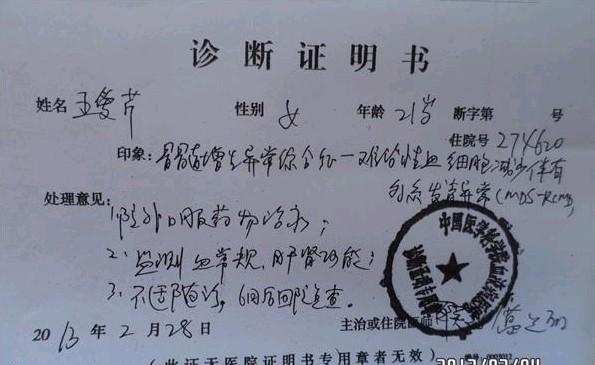 诊断证明书
姓名 王雯芹 性别 女 年龄 21岁 断字第 号
住院号 274620
印象：骨髓增生异常综合征—难治性血细胞减少伴有
多系发育异常(MDS-RCMD)
处理意见：
1.院外口服药物治疗；
2.监测血常规，肝肾功能；
3.不适随诊，6周后回院复查。
中国医学科学院血液病医院
诊断证明专用章
2013年2月28日 主治或住院医师
(此证无医院证明书专用章者无效)